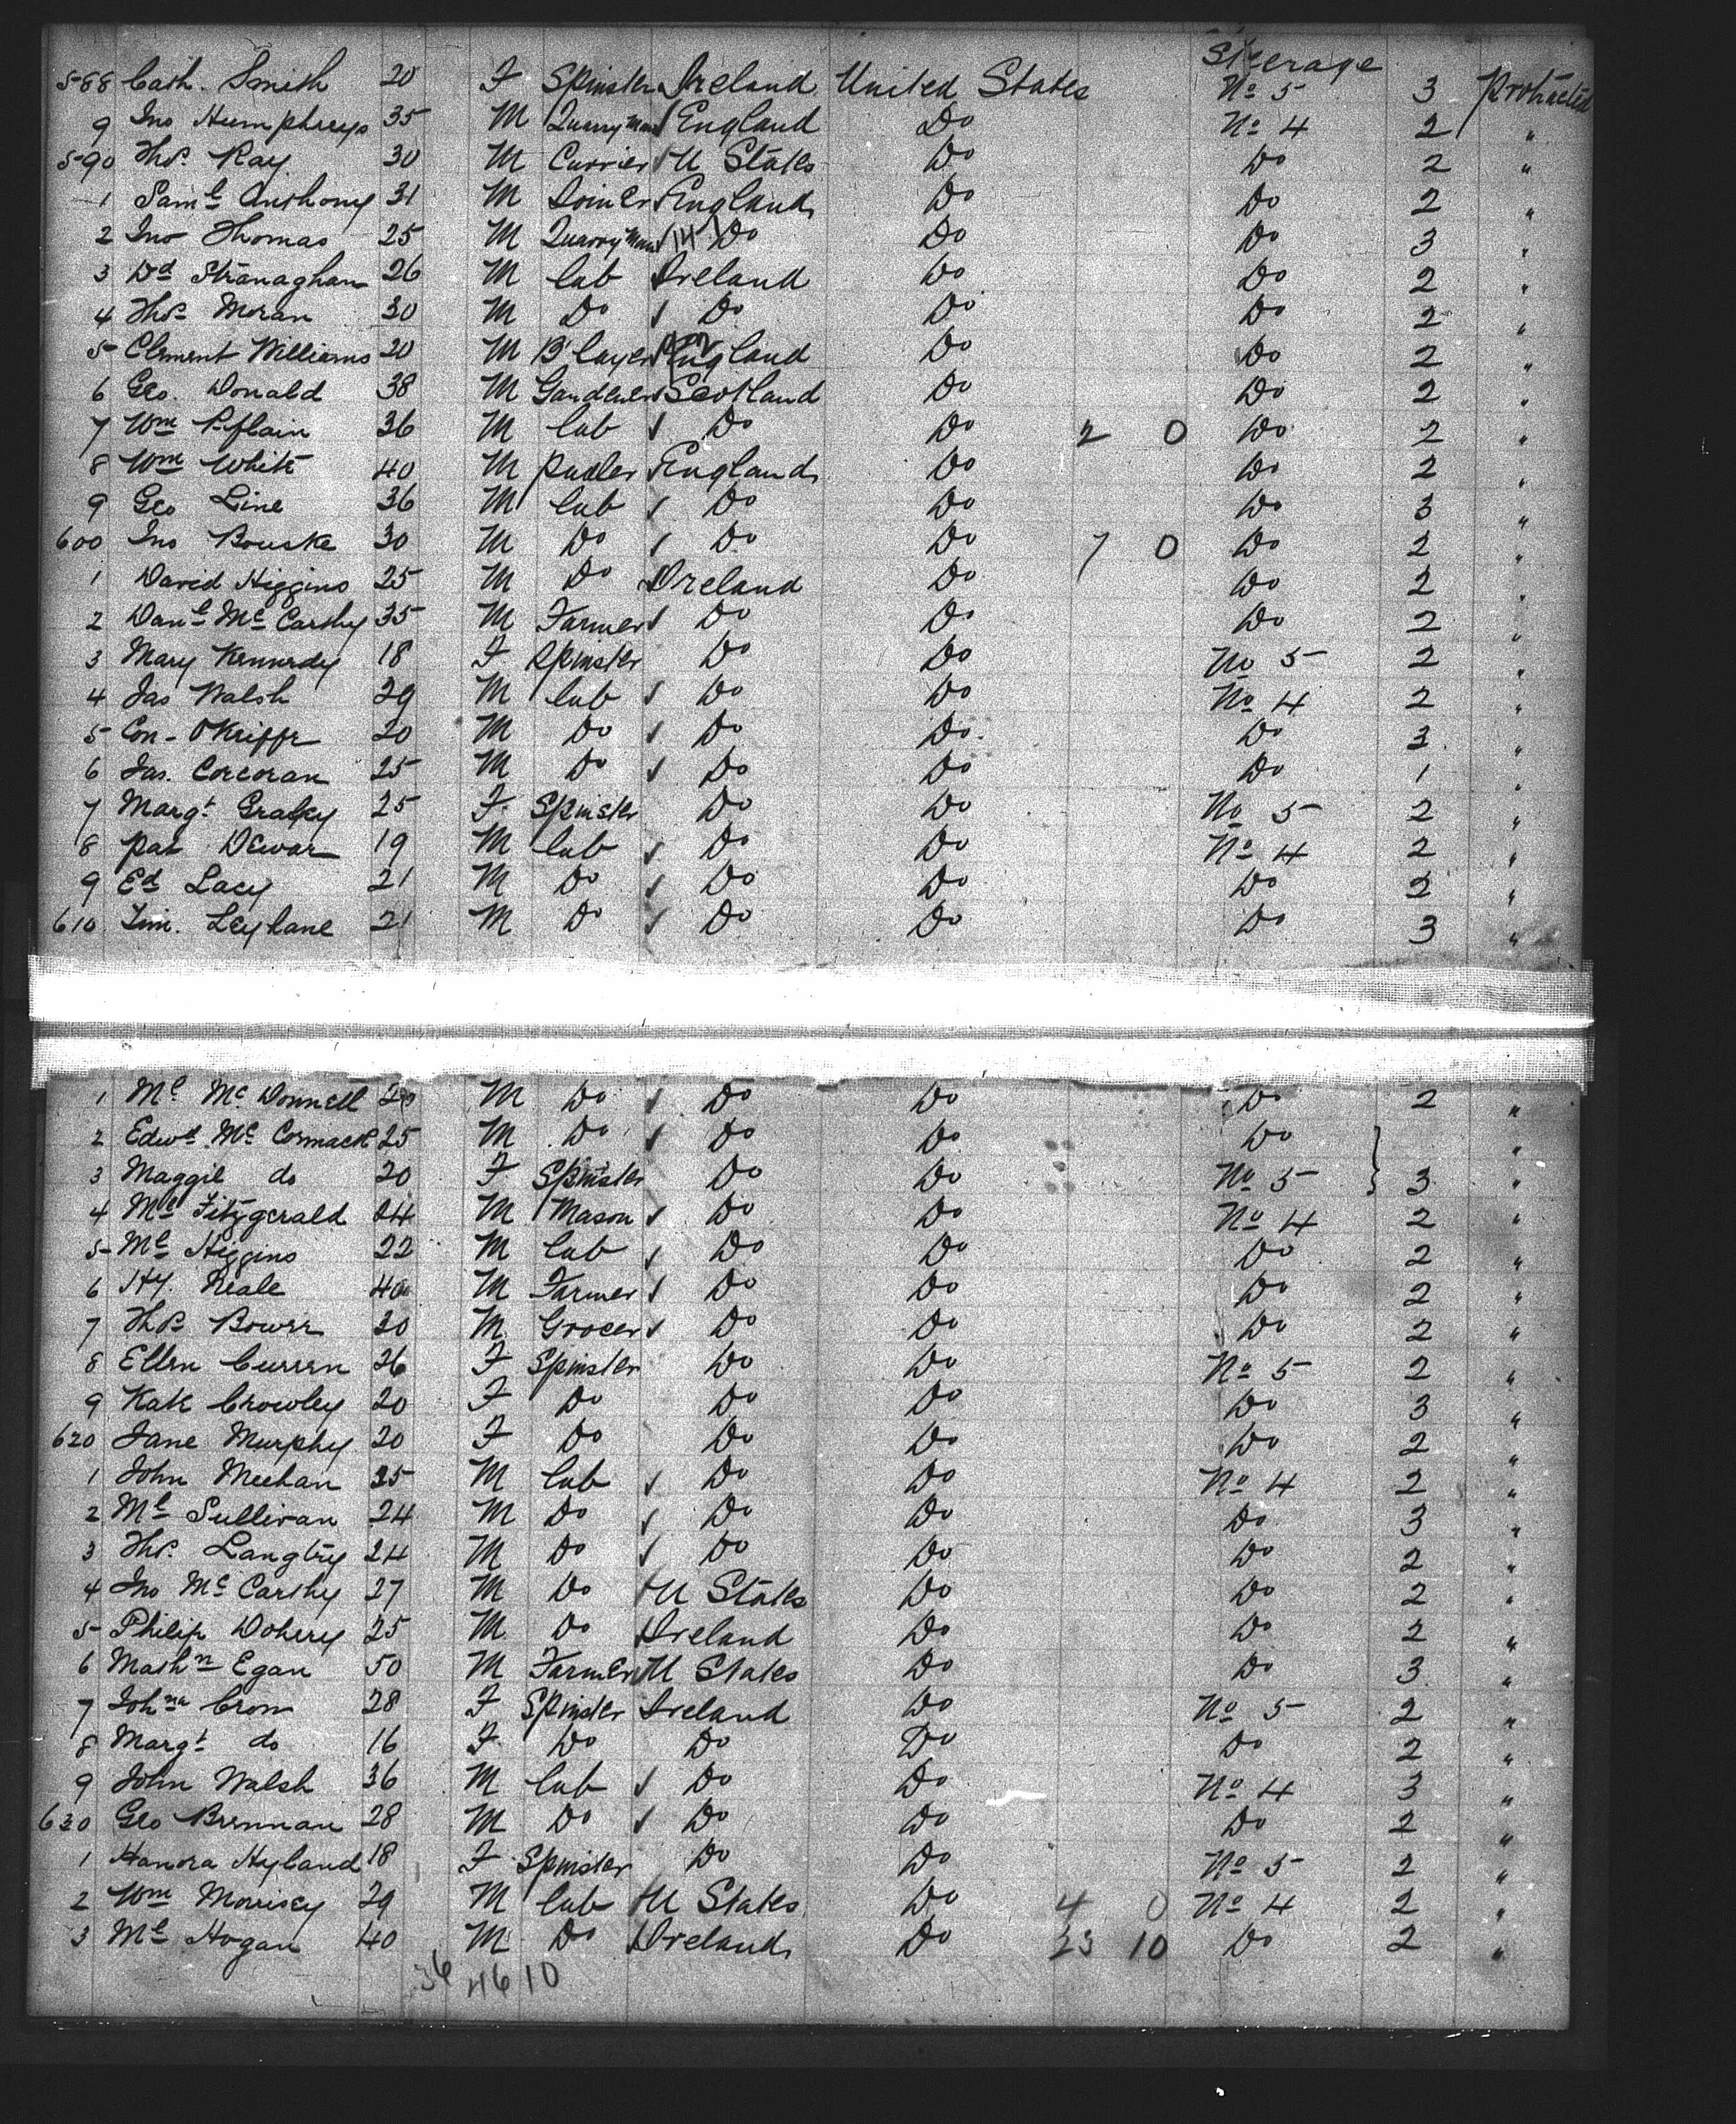 Steerage
588 Cath. Smith 20 F Spinster Ireland United States No 5 3 Protracted
9 Jno Humphreys 35 M Quarry Man England Do No 4 2 "
590 Thos. Ray 30 M Currier U States Do Do 2 "
1 Saml Anthony 31 M Joiner England Do Do 2 "
2 Jno Thomas 25 M Quarry Man Do Do Do 3 "
3 Dd Stranaghan 26 M Lab Ireland Do Do 2 "
4 Thos Moran 30 M Do Do Do Do 2 "
5 Clement Williams 20 M B'layer England Do Do 2 "
6 Geo. Donald 38 M Gardener Scotland Do Do 2 "
7 Wm 36 M Lab Do Do 2 0 Do 2 "
8 Wm White 40 M Pudler England Do Do 2 "
9 Geo Line 36 M Lab Do Do Do 3 "
600 Jno Bourke 30 M Do Do Do 7 0 Do 2 "
1 David Higgins 25 M Do Ireland Do Do 2 "
2 Danl McCarthy 35 M Farmer Do Do Do 2 "
3 Mary Kennedy 18 F Spinster Do Do No 5 2 "
4 Jas Walsh 29 M Lab Do Do No 4 2 "
5 Con- OKeiffe 20 M Do Do Do. Do 3 "
6 Jas. Corcoran 25 M Do Do Do Do 1 "
7 Margt. 25 F Spinster Do Do No 5 2 "
8 Pat Dewar 19 M Lab Do Do No 4 2 "
9 Ed Lacy 21 M Do Do Do Do 2 "
610 Tim. Leyhane 21 M Do Do Do Do 3 "
1 Ml McDonnell M Do Do Do Do 2 "
2 Edwd McCormack 25 M Do Do Do Do "
3 Maggie do 20 F Spinster Do Do No 5 3 "
4 Ml Fitzgerald 24 M Mason Do Do No 4 2 "
5 Ml Higgins 22 M Lab Do Do Do 2 "
6 Hy. Neale 40 M Farmer Do Do Do 2 "
7 Thos Bower 30 M Grocer Do Do Do 2 "
8 Ellen Curren 26 F Spinster Do Do No 5 2 "
9 Kate Crowley 20 F Do Do Do Do 3 "
620 Jane Murphy 20 F Do Do Do Do 2 "
1 John Meehan 35 M Lab Do Do No 4 2 "
2 Ml Sullivan 24 M Do Do Do Do 3 "
3 Thos. Langtry 24 M Do Do Do Do 2 "
4 Jno McCarthy 27 M Do U States Do Do 2 "
5 Philip Dohery 25 M Do Ireland Do Do 2 "
6 Mathn Egan 50 M Farmer U States Do Do 3 "
7 Johna Cron 28 F Spinster Ireland Do No 5 2 "
8 Margt do 16 F Do Do Do Do 2 "
9 John Walsh 36 M Lab Do Do No 4 3 "
630 Geo Brennan 28 M Do Do Do Do 2 "
1 Hanora Hyland 18 F Spinster Do Do No 5 2 "
2 Wm Morrisey 29 M Lab U States Do 4 0 No 4 2 "
3 Ml Hogan 40 M Do Ireland Do 23 10 Do 2 "
36 4610